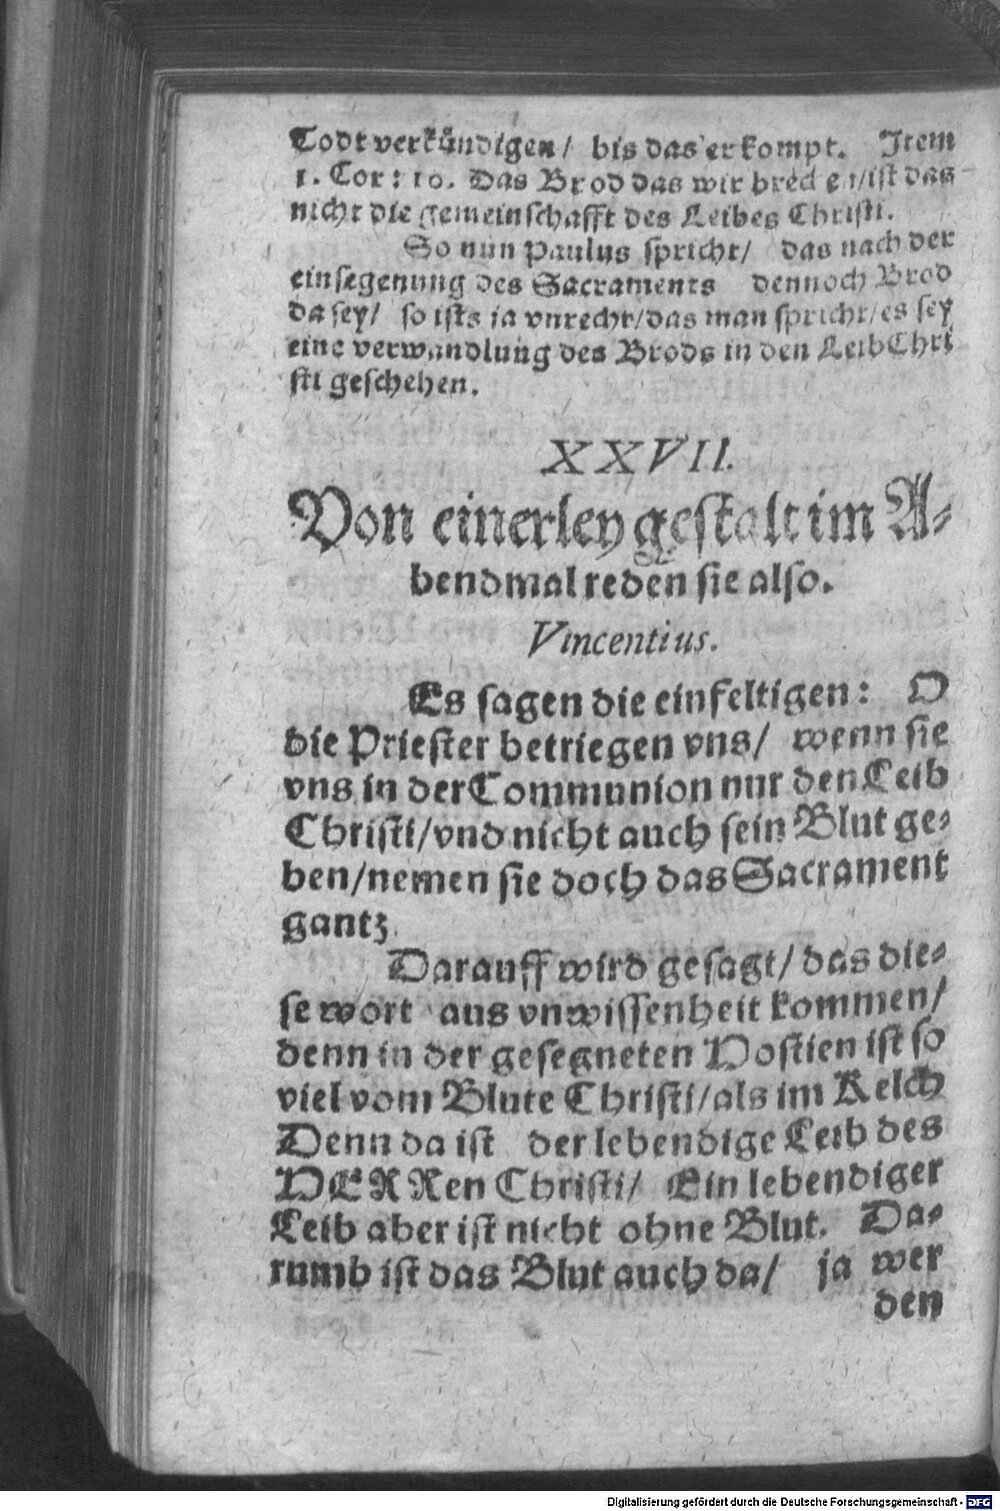 Todt verkůndigen / bis das er kompt. Item
1. Cor: 10. Das Brod das wir brechen / ist das
nicht die gemeinschafft des Leibes Christi.
So nun Paulus spricht / das nach der
einsegenung des Sacraments dennoch Brod
da sey / so ists ja vnrecht / das man spricht / es sey
eine verwandlung des Brods in den Leib Chri
sti geschehen.
XXVII.
Von einerley gestalt im A-
bendmal reden sie also.
Vincentius.
Es sagen die einfeltigen: O
die Priester betriegen vns / wenn sie
vns in der Communion nur den Leib
Christi / vnd nicht auch sein Blut ge-
ben / nemen sie doch das Sacrament
gantz.
Darauff wird gesagt / das die-
se wort aus vnwissenheit kommen /
denn in der gesegneten Hostien ist so
viel vom Blute Christi / als im Kelch
Denn da ist der lebendige Leib des
HERRen Christi / Ein lebendiger
Leib aber ist nicht ohne Blut. Da-
rumb ist das Blut auch da / ja wer
den
Digitalisierung gefördert durch die Deutsche Forschungsgemeinschaft - DFG